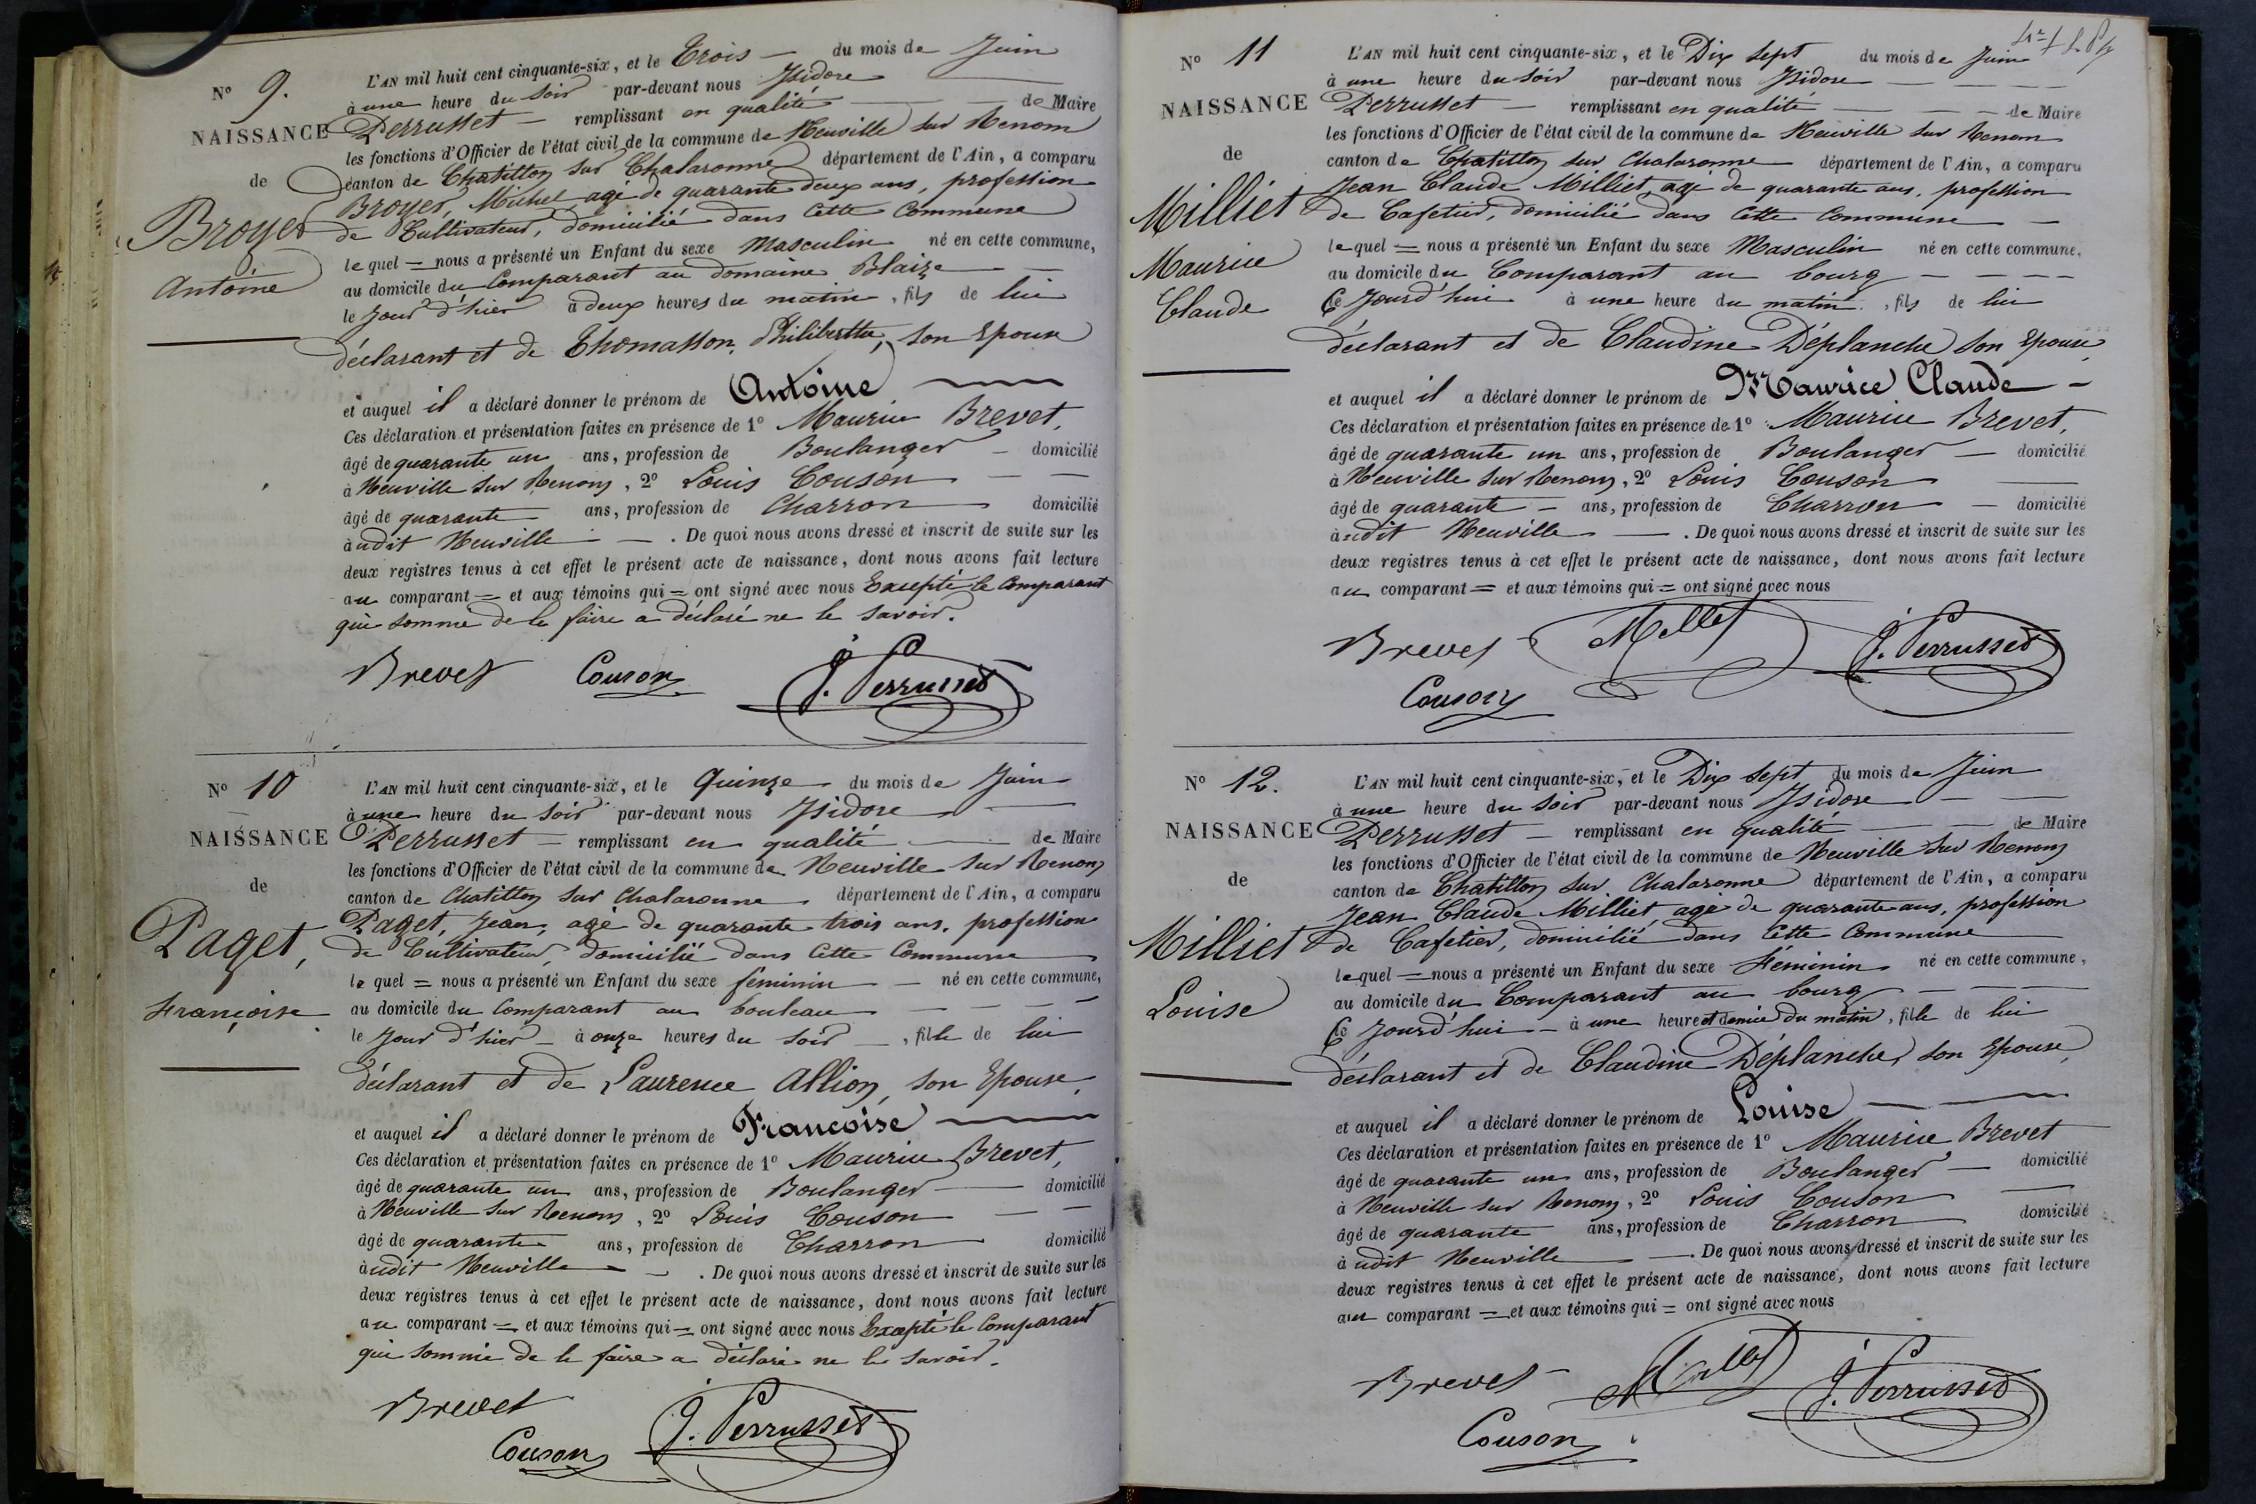 N° 9.
NAISSANCE
de
Broyer
Antoine
L'AN mil huit cent cinquante-six, et le Trois — du mois de Juin
à une heure du soir par-devant nous Isidore
Perrusset — remplissant en qualité — de Maire
les fonctions d'Officier de l'état civil de la commune de Neuville sur Renom
canton de Chatillon sur Chalaronne département de l'Ain, a comparu
Broyer, Michel agé de quarante deux ans, profession
de Cultivateur, domicilié dans cette Commune
lequel = nous a présenté un Enfant du sexe Masculin né en cette commune,
au domicile du Comparant au domaine Blaize —
le jour d'hier à deux heures du matin, fils de lui
déclarant et de Thomasson, Philiberthe, son Epouse
et auquel il a déclaré donner le prénom de Antoine —
Ces déclaration et présentation faites en présence de 1° Maurice Brevet,
âgé de quarante un ans, profession de Boulanger — domicilié
à Neuville sur Renom, 2° Louis Couson — —
âgé de quarante ans, profession de Charron domicilié
àudit Neuville — . De quoi nous avons dressé et inscrit de suite sur les
deux registres tenus à cet effet le présent acte de naissance, dont nous avons fait lecture
au comparant = et aux témoins qui = ont signé avec nous Excepté le Comparant
qui sommé de le faire a déclaré ne le savoir.
Brevet Couson J. Perrusset
N° 10
NAISSANCE
de
Paget,
Françoise
L'AN mil huit cent cinquante-six, et le Quinze du mois de Juin
à une heure du soir par-devant nous Isidore —
Perrusset — remplissant en qualité — de Maire
les fonctions d'Officier de l'état civil de la commune de Neuville sur Renom
canton de Chatillon sur Chalaronne département de l'Ain, a comparu
Paget, Jean, agé de quarante trois ans, profession
de Cultivateur, domicilié dans cette Commune
lequel = nous a présenté un Enfant du sexe féminin — né en cette commune,
au domicile du Comparant au bouleau — — —
le jour d'hier — à onze heures du soir —, fille de lui
déclarant et de Laurence Allion, son Epouse,
et auquel il a déclaré donner le prénom de Françoise —
Ces déclaration et présentation faites en présence de 1° Maurice Brevet,
âgé de quarante un ans, profession de Boulanger — domicilié
à Neuville sur Renom, 2° Louis Couson — —
âgé de quarante ans, profession de Charron domicilié
àudit Neuville — . De quoi nous avons dressé et inscrit de suite sur les
deux registres tenus à cet effet le présent acte de naissance, dont nous avons fait lecture
au comparant = et aux témoins qui = ont signé avec nous Excepté le Comparant
qui sommé de le faire a déclaré ne le savoir.
Brevet
Couson J. Perrusset
N° 11
NAISSANCE
de
Milliet
Maurice
Claude
L'AN mil huit cent cinquante-six, et le Dix sept du mois de Juin
à une heure du soir par-devant nous Isidore — — —
Perrusset — remplissant en qualité — de Maire
les fonctions d'Officier de l'état civil de la commune de Neuville sur Renom
canton de Chatillon sur Chalaronne département de l'Ain, a comparu
Jean Claude Milliet, agé de quarante ans, profession
de Cafetier, domicilié dans cette Commune —
lequel = nous a présenté un Enfant du sexe Masculin né en cette commune,
au domicile du Comparant au bourg — — — —
Ce Jourd'hui à une heure du matin, fils de lui
déclarant et de Claudine Déplanche son Epouse,
et auquel il a déclaré donner le prénom de Maurice Claude —
Ces déclaration et présentation faites en présence de 1° Maurice Brevet,
âgé de quarante un ans, profession de Boulanger — domicilié
à Neuville sur Renom, 2° Louis Couson —
âgé de quarante — ans, profession de Charron — domicilié
àudit Neuville — . De quoi nous avons dressé et inscrit de suite sur les
deux registres tenus à cet effet le présent acte de naissance, dont nous avons fait lecture
au comparant = et aux témoins qui = ont signé avec nous
Brevet Millet J. Perrusset
Couson
N° 12.
NAISSANCE
de
Milliet
Louise
L'AN mil huit cent cinquante-six, et le Dix sept du mois de Juin
à une heure du soir par-devant nous Isidore — —
Perrusset — remplissant en qualité — de Maire
les fonctions d'Officier de l'état civil de la commune de Neuville sur Renom
canton de Chatillon sur Chalaronne département de l'Ain, a comparu
Jean Claude Milliet, agé de quarante ans, profession
de Cafetier, domicilié dans cette Commune
lequel = nous a présenté un Enfant du sexe Féminin né en cette commune,
au domicile du Comparant au bourg — —
Ce Jourd'hui — à une heure et demie du matin, fille de lui
déclarant et de Claudine Déplanche, son Epouse,
et auquel il a déclaré donner le prénom de Louise — —
Ces déclaration et présentation faites en présence de 1° Maurice Brevet
âgé de quarante un ans, profession de Boulanger — domicilié
à Neuville sur Renom, 2° Louis Couson —
âgé de quarante ans, profession de Charron domicilié
àudit Neuville — . De quoi nous avons dressé et inscrit de suite sur les
deux registres tenus à cet effet le présent acte de naissance, dont nous avons fait lecture
au comparant = et aux témoins qui = ont signé avec nous
Brevet Millet J. Perrusset
Couson